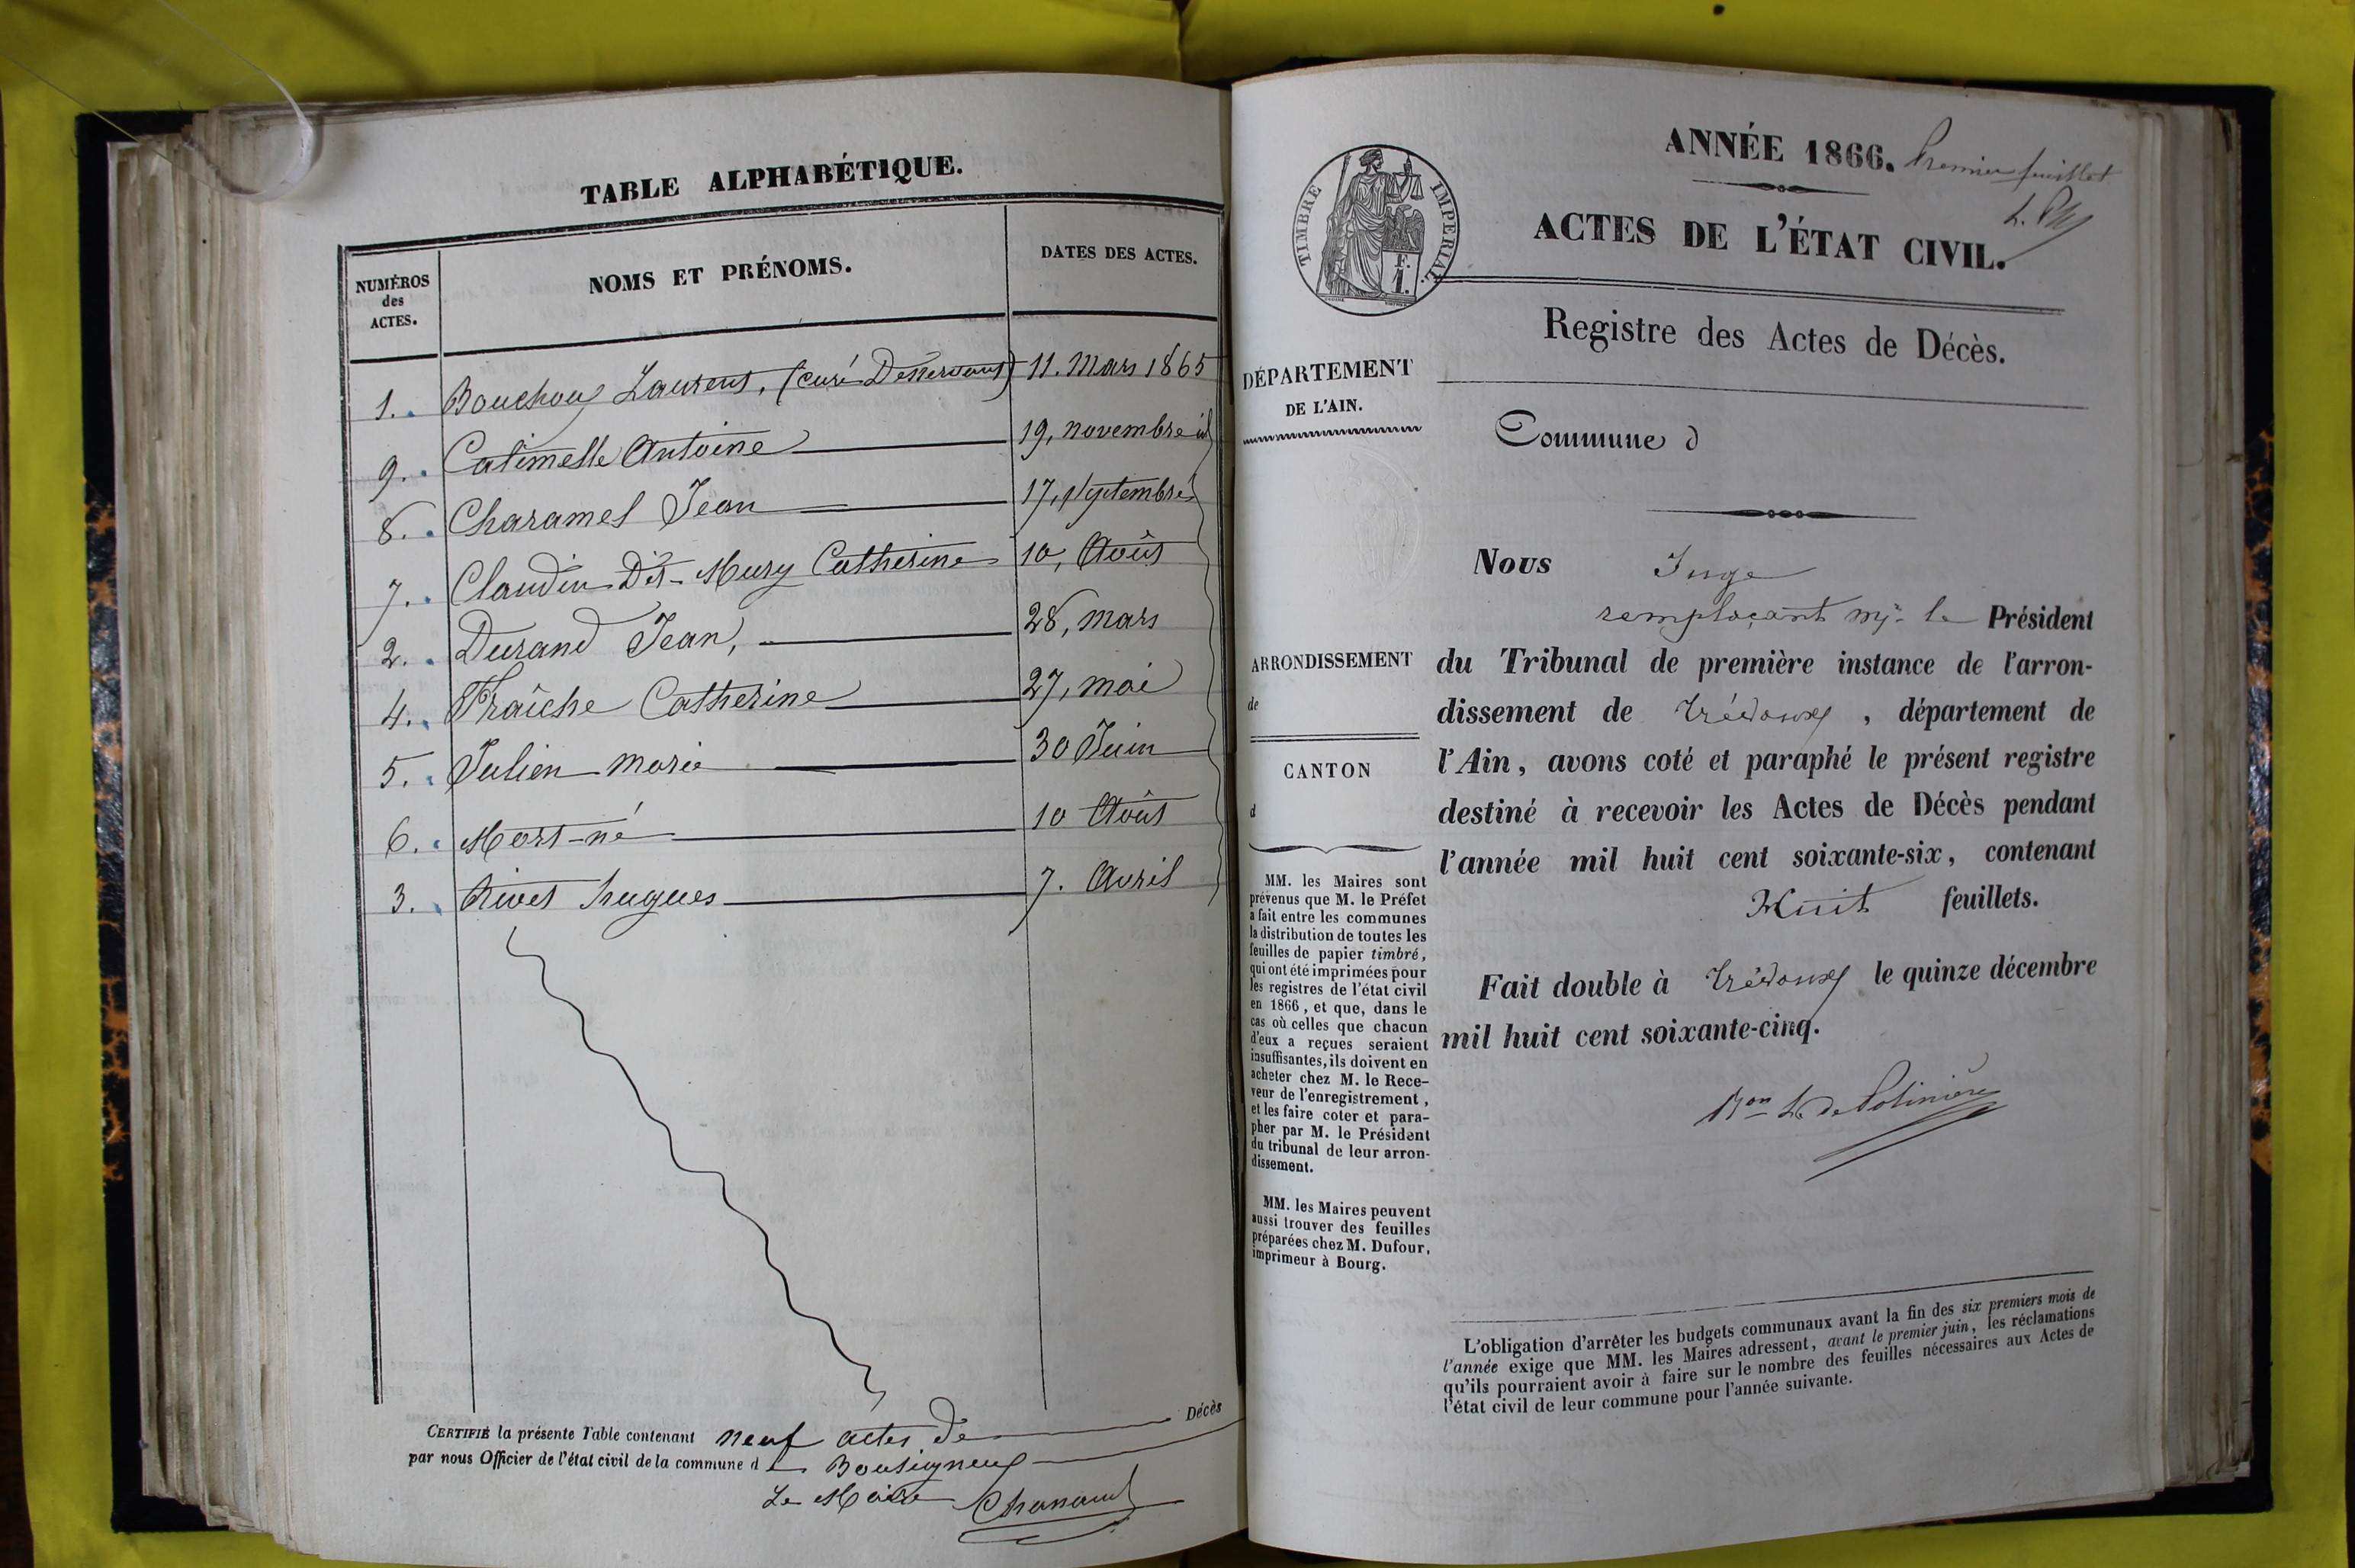 TABLE ALPHABÉTIQUE.
NUMÉROS
des
ACTES.
NOMS ET PRÉNOMS.
DATES DES ACTES.
1. Bouchoux Laurent, (curé Desservant) 11. Mars 1865
9. Catimelle Antoine 19, novembre id
8. Charamel Jean 17, septembre
7. Claudin Dit-Mury Catherine 10, Août
2. Durand Jean, 28, mars
4. Fraîche Catherine 27, mai
5. Julien marie 30 Juin
6. Mort-né 10 Août
3. Rivet hugues 7. Avril
CERTIFIÉ la présente Table contenant neuf actes de Décès
par nous Officier de l'état civil de la commune de Bouligneux
Le Maire Chanaud
ANNÉE 1866. Premier feuillet
ACTES DE L'ÉTAT CIVIL.
TIMBRE IMPERIAL.
F.
1.
Registre des Actes de Décès.
DÉPARTEMENT
DE L'AIN.
Commune d
Nous Juge
remplaçant Mr. le Président
du Tribunal de première instance de l'arron-
dissement de Trévoux, département de
l'Ain, avons coté et paraphé le présent registre
destiné à recevoir les Actes de Décès pendant
l'année mil huit cent soixante-six, contenant
Huit feuillets.
Fait double à Trévoux le quinze décembre
mil huit cent soixante-cinq.
Bon L. de Polinière
ARRONDISSEMENT
de
CANTON
d
MM. les Maires sont
prévenus que M. le Préfet
a fait entre les communes
la distribution de toutes les
feuilles de papier timbré,
qui ont été imprimées pour
les registres de l'état civil
en 1866, et que, dans le
cas où celles que chacun
d'eux a reçues seraient
insuffisantes, ils doivent en
acheter chez M. le Rece-
veur de l'enregistrement,
et les faire coter et para-
pher par M. le Président
du tribunal de leur arron-
dissement.
MM. les Maires peuvent
aussi trouver des feuilles
préparées chez M. Dufour,
imprimeur à Bourg.
L'obligation d'arrêter les budgets communaux avant la fin des six premiers mois de
l'année exige que MM. les Maires adressent, avant le premier juin, les réclamations
qu'ils pourraient avoir à faire sur le nombre des feuilles nécessaires aux Actes de
l'état civil de leur commune pour l'année suivante.